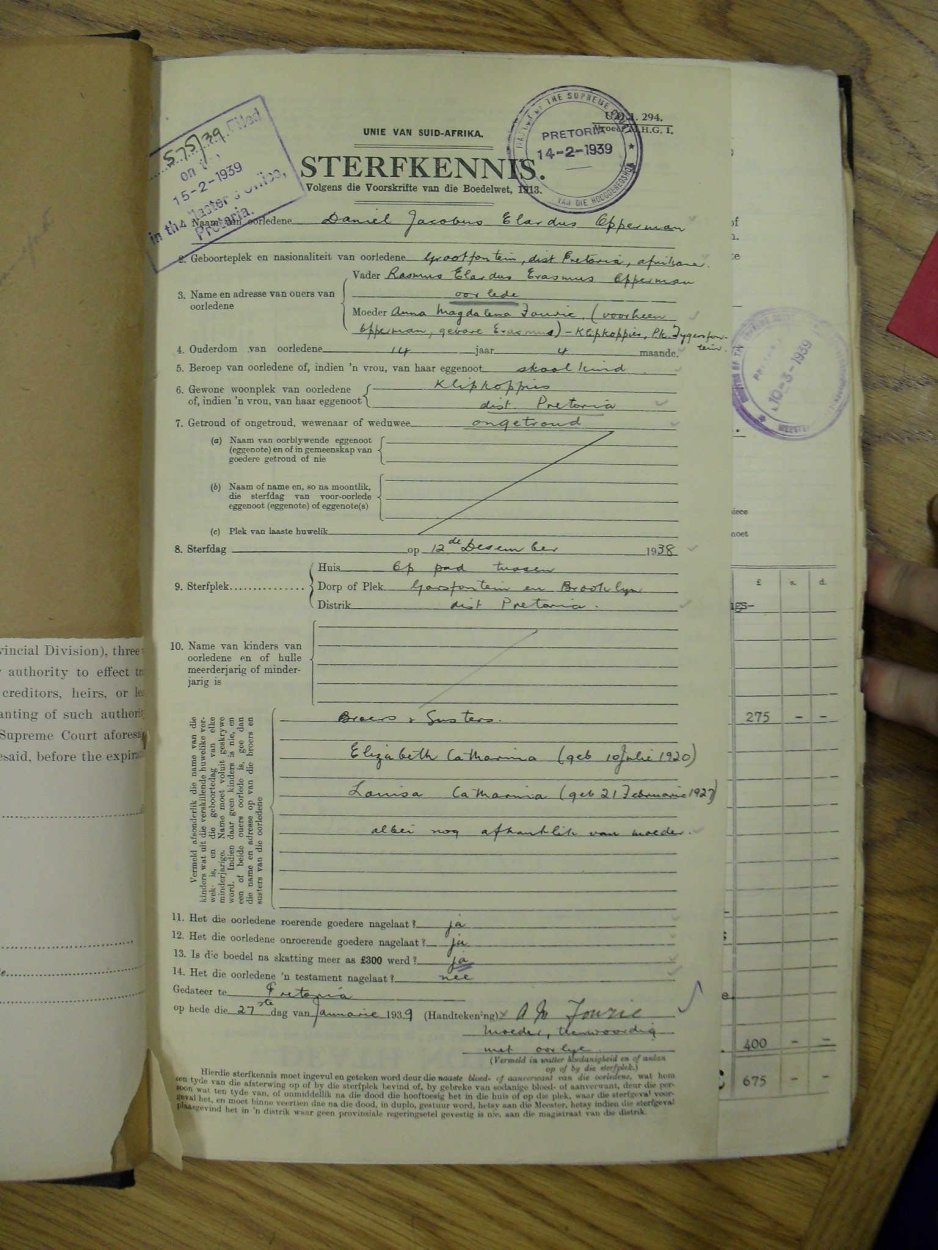 575/39 Filed
on the
15-2-1939
in the Master's Office,
Pretoria.
UNIE VAN SUID-AFRIKA.
294.
M.H.G. 1.
OF THE SUPREME
PRETORIA
14-2-1939
VAN DIE HOOGGEREGSHOF
STERFKENNIS.
Volgens die Voorskrifte van die Boedelwet, 1913.
1. Naam van oorledene Daniel Jacobus Elardus Opperman
2. Geboorteplek en nasionaliteit van oorledene Grootfontein, dist. Pretoria, afrikaner.
3. Name en adresse van ouers van oorledene
Vader Rasmus Elardus Erasmus Opperman
oorlede
Moeder Anna Magdalena Fourie, (voorheen
Opperman, gebore Erasmus) – Klipkoppies, Pk. Tygerfontein.
4. Ouderdom van oorledene 14 jaar 4 maande.
5. Beroep van oorledene of, indien 'n vrou, van haar eggenoot skool kind
6. Gewone woonplek van oorledene of, indien 'n vrou, van haar eggenoot
Klipkoppies
dist. Pretoria
7. Getroud of ongetroud, wewenaar of weduwee ongetroud
(a) Naam van oorblywende eggenoot
(eggenote) en of in gemeenskap van
goedere getroud of nie
(b) Naam of name en, so na moontlik,
die sterfdag van voor-oorlede
eggenoot (eggenote) of eggenote(s)
(c) Plek van laaste huwelik
8. Sterfdag op 12de Desember 1938
9. Sterfplek
Huis Op pad tussen
Dorp of Plek Garsfontein en Brooklyn
Distrik dist Pretoria.
10. Name van kinders van
oorledene en of hulle
meerderjarig of minder-
jarig is
Vermeld afsonderlik die name van die
kinders wat uit die verskillende huwelike ver-
wek is, en die geboortedag van elke
minderjarige. Name moet voluit geskrywe
word. Indien daar geen kinders is nie, en
een of beide ouers oorlede is, gee dan
die name en adresse op van die broers en
susters van die oorledene
Broers & Susters.
Elizabeth Catharina (geb 10 Julie 1920)
Louisa Catharina (geb 21 Februarie 1927)
albei nog afhanklik van moeder.
11. Het die oorledene roerende goedere nagelaat? ja
12. Het die oorledene onroerende goedere nagelaat? ja
13. Is die boedel na skatting meer as £300 werd? ja
14. Het die oorledene 'n testament nagelaat? nee
Gedateer te Pretoria
op hede die 27ste dag van Januarie 1939 (Handtekening) A M Fourie
moeder, teenwoordig
met oorlye.
(Vermeld in watter hoedanigheid en of anders
op of by die sterfplek.)
Hierdie sterfkennis moet ingevul en geteken word deur die naaste bloed- of aanverwant van die oorledene, wat
ten tyde van die afsterwing op of by die sterfplek bevind of, by gebreke van sodanige bloed- of aanverwant, deur die per-
soon wat ten tyde van, of onmiddellik na die dood die hooftoesig het in die huis of op die plek, waar die sterfgeval voor-
geval het, en moet binne veertien dae na die dood, in duplo, gestuur word, hetsy aan die Meester, hetsy indien die sterfgeval
plaasgevind het in 'n distrik waar geen provinsiale regeringsetel gevestig is nie, aan die magistraat van die distrik.
vincial Division), three
authority to effect
creditors, heirs, or
anting of such
Supreme Court
esaid, before the
10-3-1939
piece
moet
£ s. d.
275 – –
400 – –
675 – –